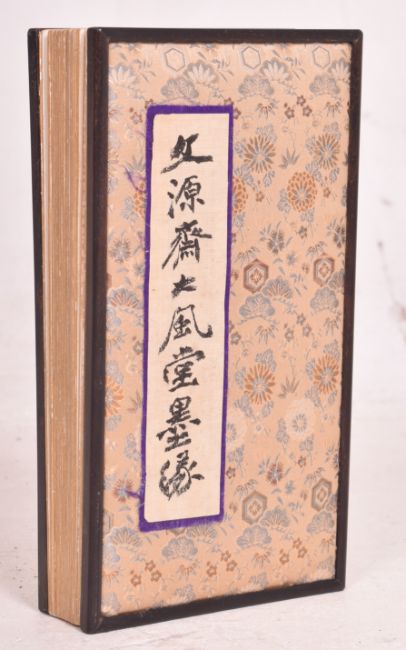 文源齋大風堂墨緣